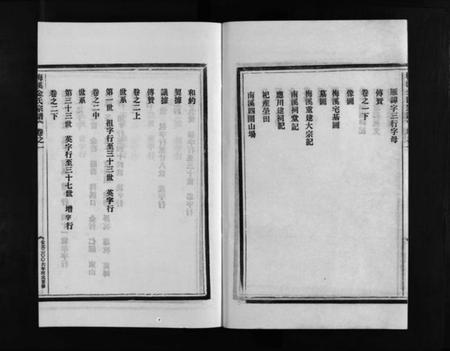 雁譚字三行字母
傳贊
卷之一下
像圖
梅溪宅基圖
墓圖
梅溪重建大宗記
南溪祠堂記
應川建祠記
祀產塋田
南溪四圍山場
和約
契據
議據
傳贊
卷之二上
世系
第一世 祖字行至三十三世 英字行
卷之二中
世系
第三十三世 英字行至三十七世 增字行
卷之二下
梅溪金氏宗譜 卷之一